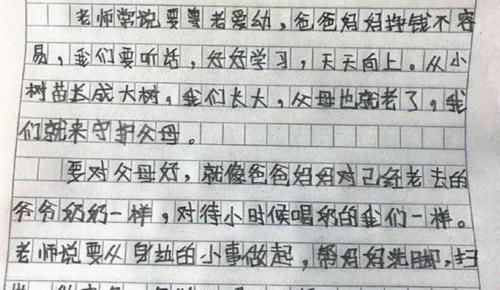 老师常说要尊老爱幼，爸爸妈妈挣钱不容
易，我们要听话，好好学习，天天向上。从小
树苗长成大树，我们长大，父母也就老了，我
们就来守护父母。
要对父母好，就像爸爸妈妈对己经老去的
爷爷奶奶一样，对待小时候喝奶的我们一样。
老师说要从身边的小事做起，帮妈妈洗脚，扫